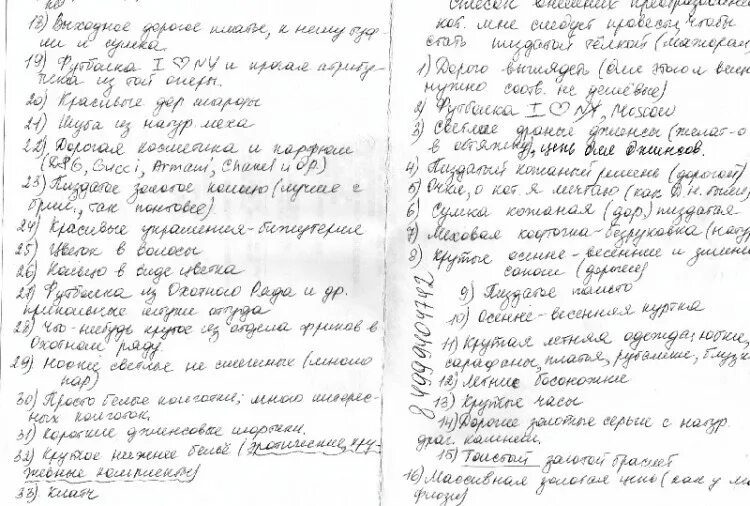 18) Выходное дорогое платье, к нему туф-
ли и сумка.
19) Футболка I ♡ NY и прочая атрибу-
тика из той оперы.
20) Красивые дор шарфы
21) Шуба из натур. меха
22) Дорогая косметика и парфюм
(D&G, Gucci, Armani, Chanel и др.)
23) Пиздатое золотое кольцо (лучше с
брил., так понтовее)
24) Красивые украшения - бижутерия
25) Цветок в волосы
26) Кольцо в виде цветка
27) Футболка из Охотного Ряда и др.
прикольные штуки оттуда
28) Что-нибудь крутое из отдела фриков в
Охотном ряду.
29) Носки светлые не смешные (много
пар)
30) Просто белые колготки; много интерес-
ных колготок.
31) Короткие джинсовые шортики.
32) Крутое нижнее бельё (эротические, кру-
жевные комплекты)
33) Клатч
Список внешних преобразований
кот. мне следует провести, чтобы
стать пиздатой тёлкой (мажоркой)
1) Дорого выглядеть (для этого и вещи
нужно соотв. не дешёвые)
2) Футболка I ♡ NY, Moscow
3) Светлые драные джинсы (желат-о
в обтяжку, цепь для джинсов.
4) Пиздатый кожаный ремень (дорогой)
5) Очки, о кот. я мечтаю (как
6) Сумка кожаная (дор.) пиздатая
7) Меховая кофточка-безрукавка (нату
8) Крутые осенне-весенние и зимние
сапоги (дорогие)
9) Пиздатое пальто
10) Осенне-весенняя куртка
11) Крутая летняя одежда: юбки,
сарафаны, платья, футболки, блузк
12) Летние босоножки
13) Крутые часы
14) Дорогие золотые серьги с натур.
драг. камнями.
15) Толстый золотой браслет
16) Массивная золотая цепь (как у
8 4999404742